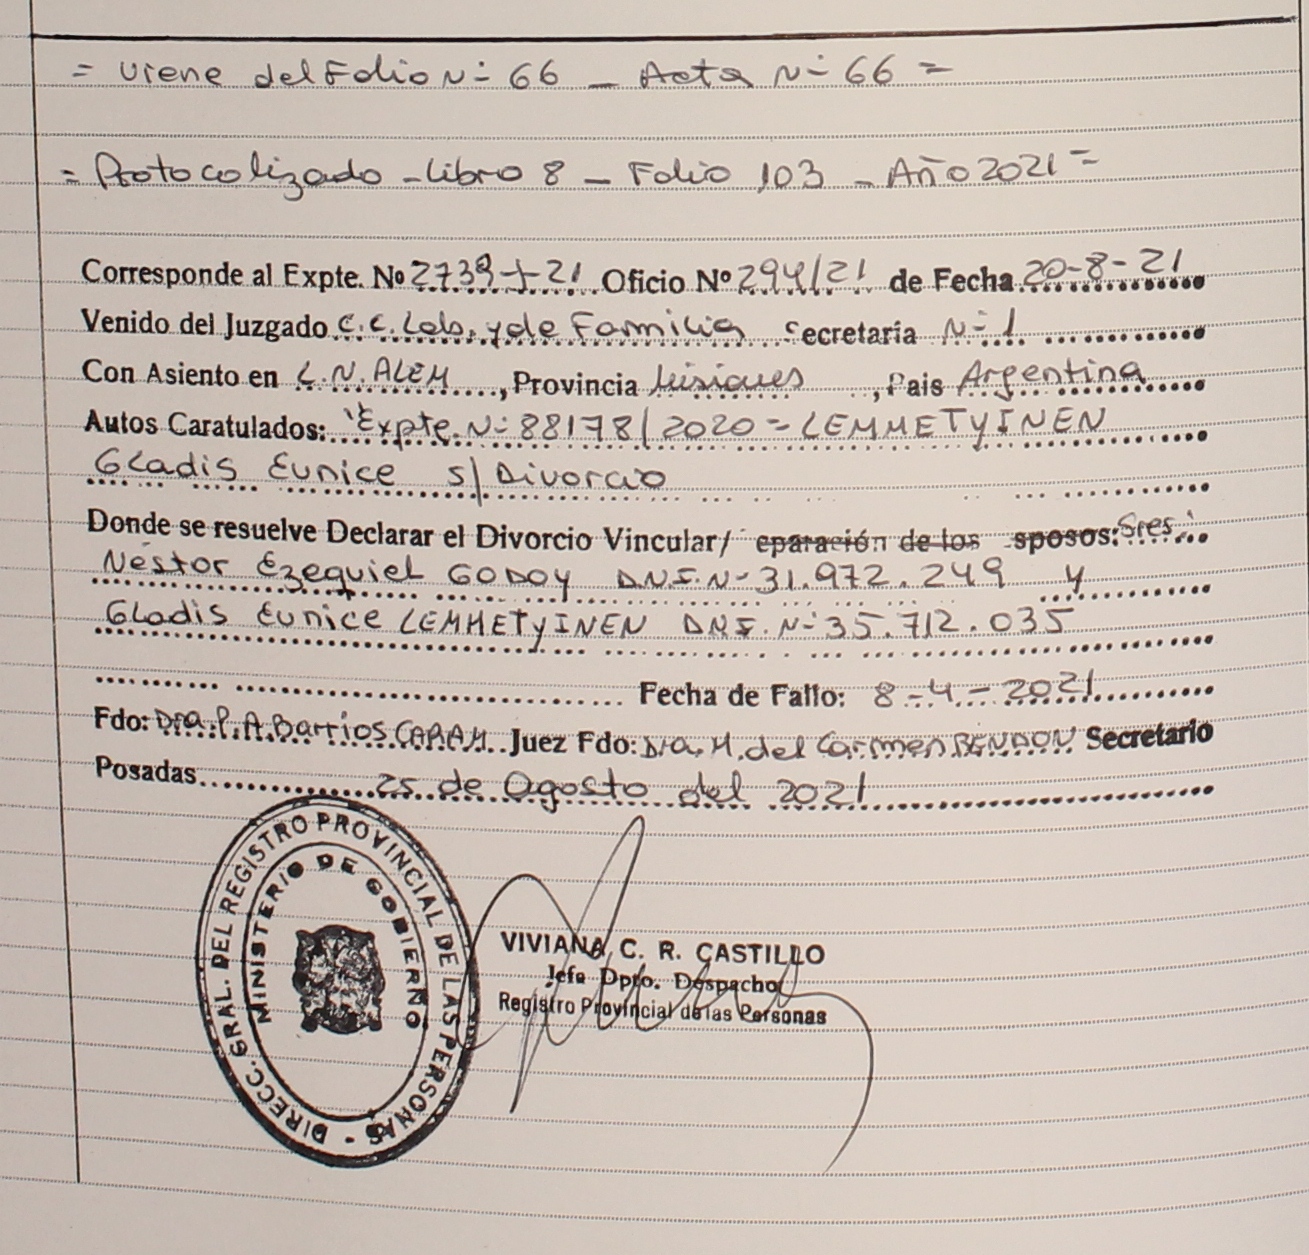 = Viene del Folio Nº 66 _ Acta Nº 66 =
= Protocolizado - Libro 8 - Folio 103 - Año 2021 =
Corresponde al Expte. Nº 2739-J-21 Oficio Nº 294/21 de Fecha 20-8-21
Venido del Juzgado C.C. Lab. y de Familia Secretaria Nº 1
Con Asiento en L.N. ALEM, Provincia Misiones, Pais Argentina
Autos Caratulados: "Expte. Nº 88178/2020 - LEMMETYINEN
Gladis Eunice s/ Divorcio
Donde se resuelve Declarar el Divorcio Vincular/ eparación de los sposos: Sres.
Néstor Ezequiel GODOY D.N.I. Nº 31.972.249 y
Gladis Eunice LEMMETYINEN DNI. Nº 35.712.035
Fecha de Fallo: 8-4-2021
Fdo: Dra. P.A. Barrios CARAM. Juez Fdo: Dra. M. del Carmen Secretario
Posadas 25 de Agosto del 2021
DIRECC. GRAL. DEL REGISTRO PROVINCIAL DE LAS PERSONAS -
MINISTERIO DE GOBIERNO
VIVIANA C. R. CASTILLO
Jefa Dpto. Despacho
Registro Provincial de las Personas